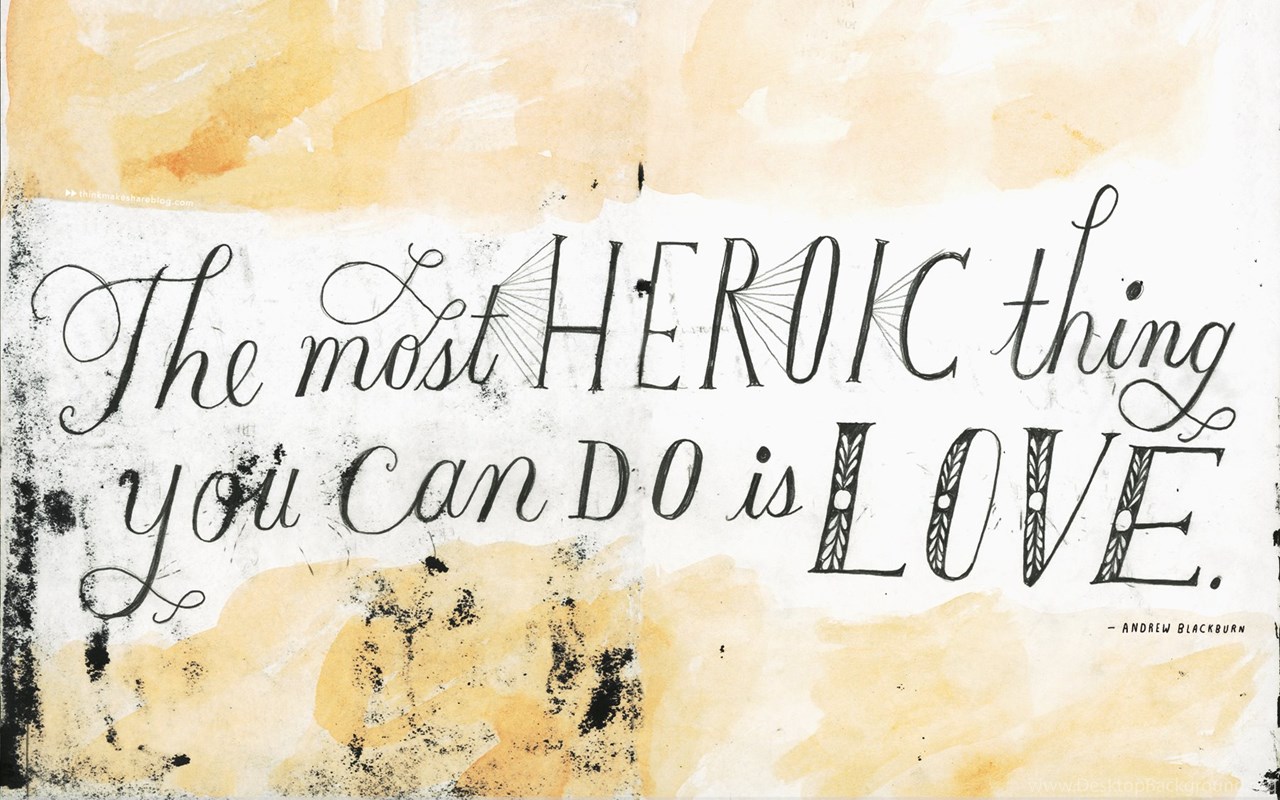 thinkmakeshareblog.com
The most HEROIC thing
you can DO is LOVE.
– ANDREW BLACKBURN
www.DesktopBackground